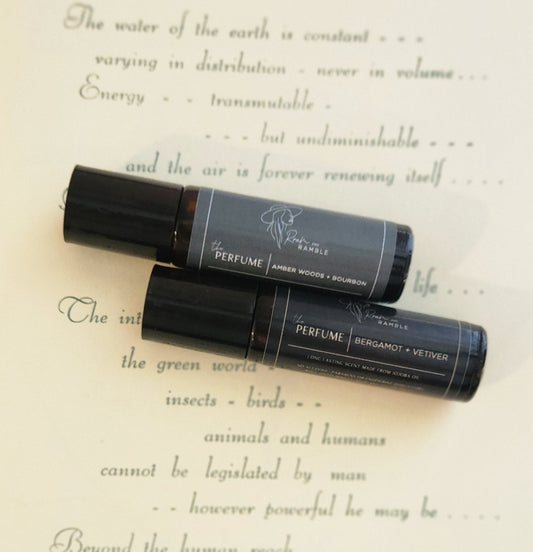 The water of the earth is constant - - -
varying in distribution - never in volume . . .
Energy - - transmutable -
- - - but undiminishable - - -
and the air is forever renewing itself . . . .
Roam and
RAMBLE
the
PERFUME | AMBER WOODS + BOURBON
life . . .
RAMBLE
the
PERFUME | BERGAMOT + VETIVER
LONG LASTING SCENT MADE FROM JOJOBA OIL
The int
the green world -
insects - birds - -
animals and humans
cannot be legislated by man
- - however powerful he may be . . . .
Beyond the human reach